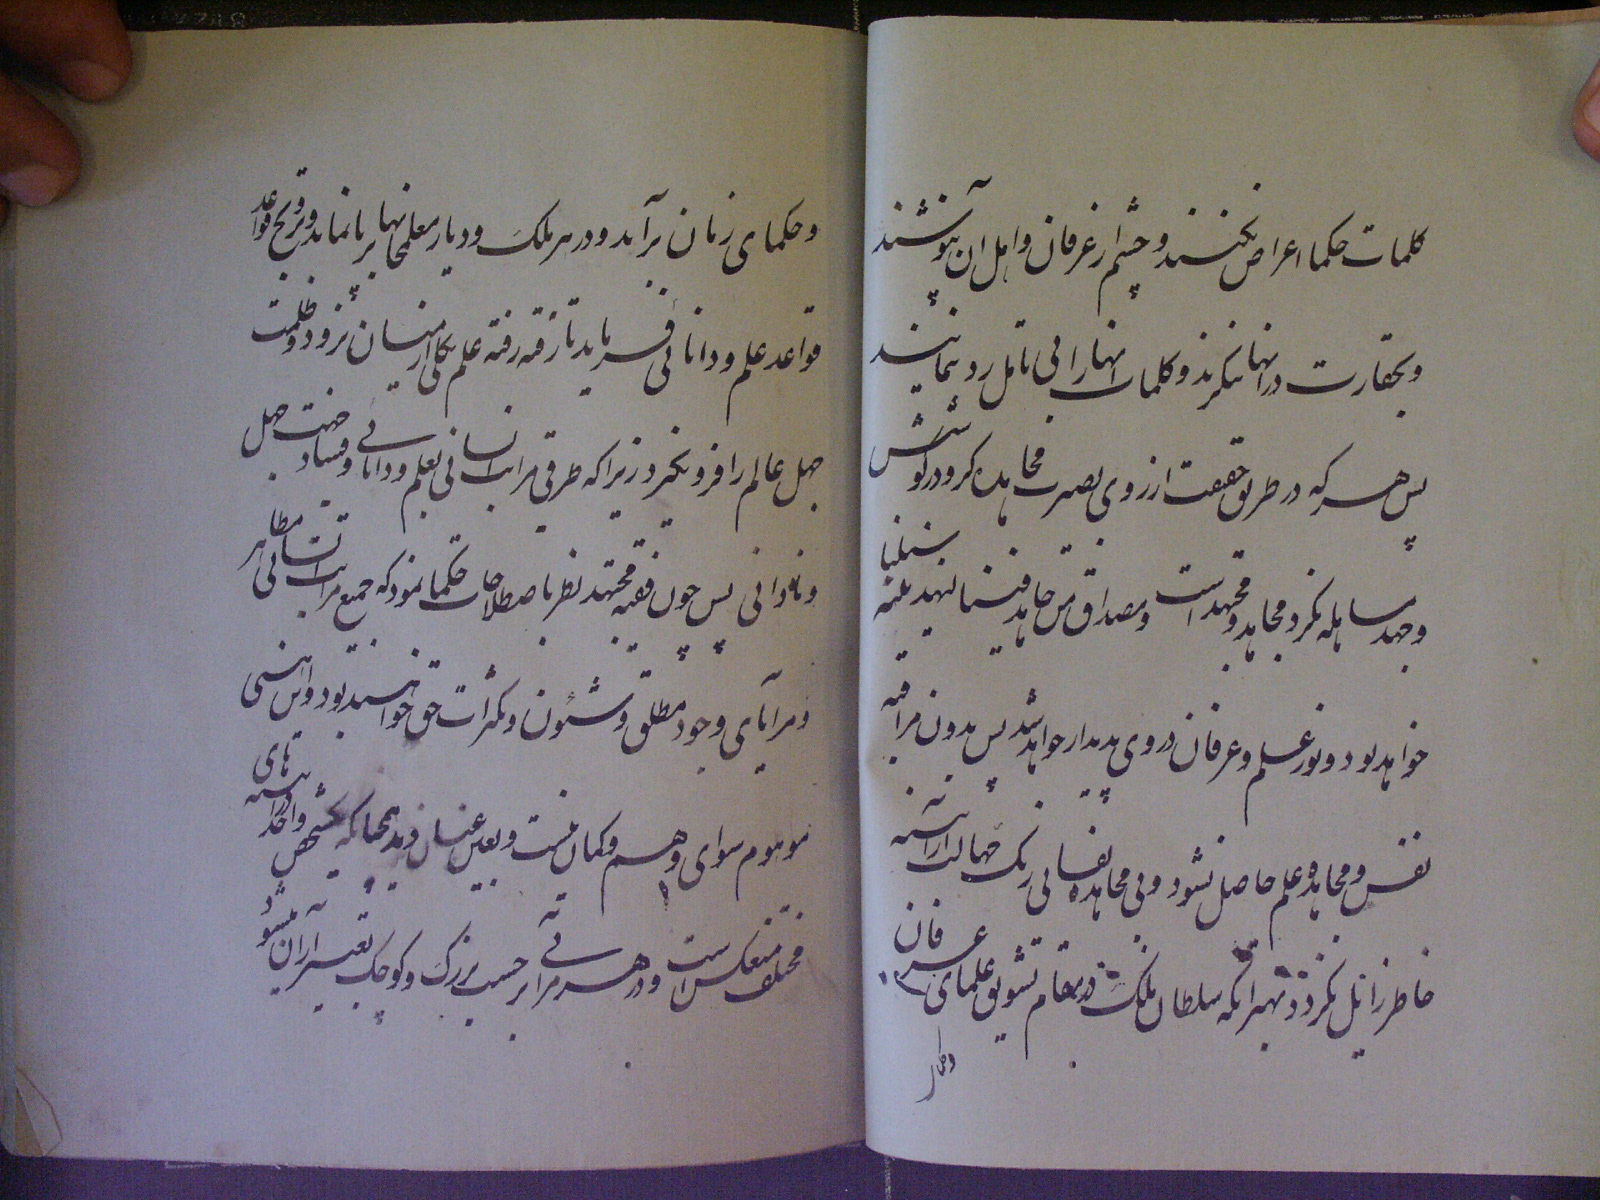 کلمات حکما اعراض نکنند و چشم از عرفان و اهل آن نپوشند
و بحقارت در آنها ننگرند و کلمات آنها را بی تامل رد ننمایند
پس هر که در طریق حقیقت از روی بصیرت مجاهده کرد و در کوشش
و جهد مساهله نکرد مجاهد و مجتهد است و مصداق من جاهد فینا لنهدینه سبلنا
خواهد بود و نور علم و عرفان در وی پدیدار خواهد شد پس بدون مراقبه
نفس و مجاهده علم حاصل نشود و بی مجاهده نفسانی زنگ جهالت از آینه
خاطر زایل نگردد بهتر آنکه سلطان ملک در مقام تشویق علمای عرفان
و حکما
و حکمای زمان برآید و در هر ملک و دیار معلمخانها برپا نماید و ترویج قواعد
قواعد علم و دانائی فرماید تا رفته رفته علم بکلی از میان نرود و ظلمت
جهل عالم را فرو نگیرد زیرا که ترقی مراتب انسانی بعلم و دانائی و فساد جهل
و نادانی پس چون فقیه مجتهد نظر باصطلاحات حکما نمود که جمیع مراتب انسانی مظاهر
و مرایای وجود مطلق و شئون و تکثرات حق خواهند بود و این هستی
موهوم سوای وهم و گمان نیست و بعین عیان دید همچنانکه شخص واحد در آینه های
مختلف منعکس است و در هر مرآتی بر حسب بزرگ و کوچک تغییر در آن میشود